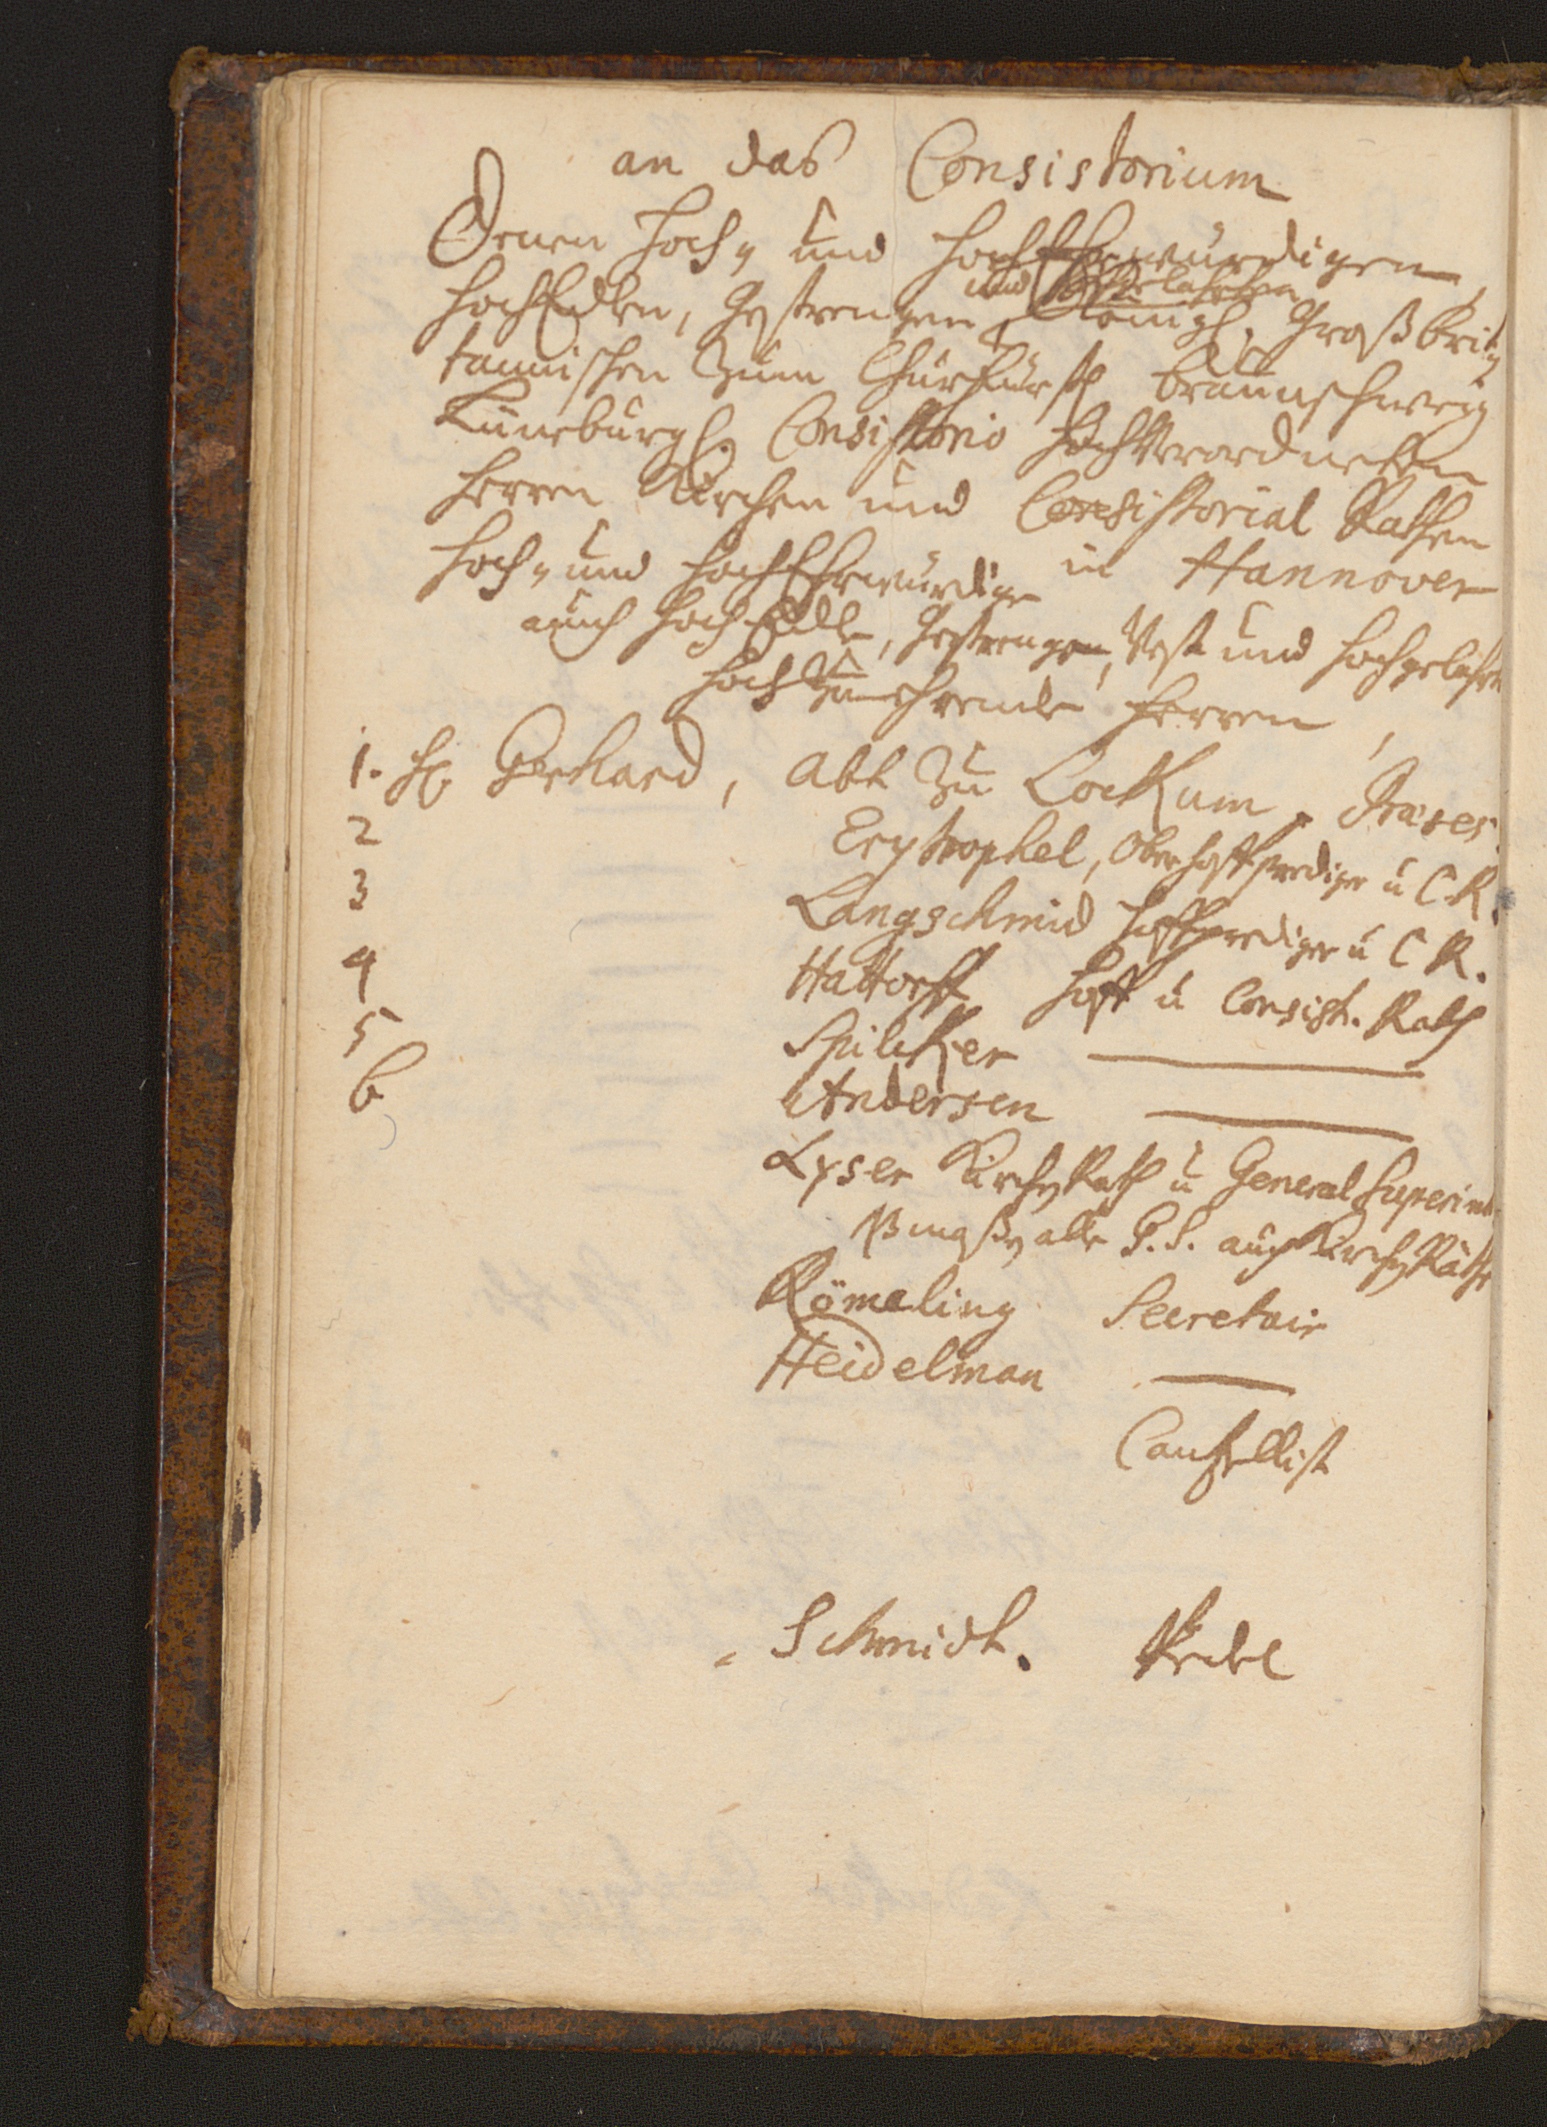 an das Consistorium
Denen Hoch- und HochEhrwürdigen,
und Hochgelahrten
HochEdlen, Gestrengen Königl. Großbri-
tannischen Zum Churfürstl Braunschweig
Lüneburgl. Consistorio Hochverordneten
Herren Kirchen und Consistorial Räthen
in Hannover
Hoch- und HochEhrwürdige
auch HochEdle, Gestrengen, Vest und Hochgelahrte
HochZuehrende Herren,
1. H Gerhard, Abt Zu Lockum, Praeses.
2 Erytropkel, Oberhoffprediger u C.R.
3 Langschmid Hoffprediger u C R.
4 Hattorff Hoff u Consist. Rath
5 Spilcker ———
6 Andersen ———
Lyser Kirchen Rath u General Superint.
alle G.S. auch Kirchen Räthe
Römeling Secretair
Heidelman ———
Cantzellist
Schmidt. Pedel